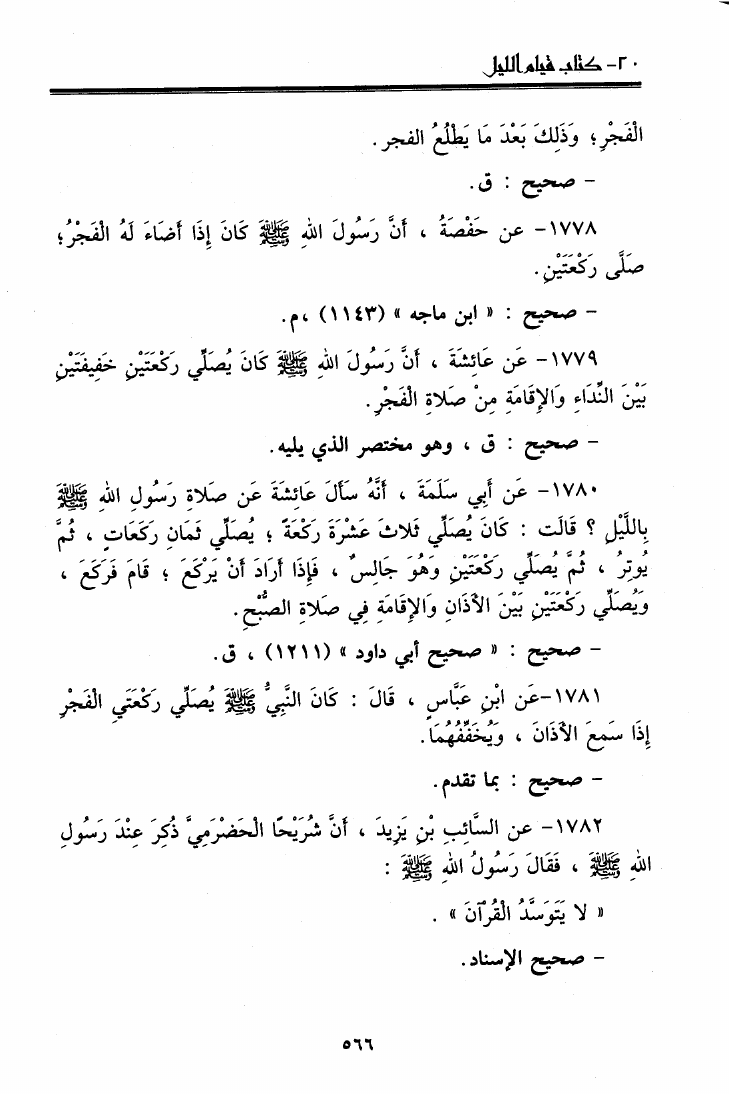 ٢٠- كتاب قيام الليل
الْفَجْرِ؛ وَذَلِكَ بَعْدَ مَا يَطْلُعُ الفجر.
- صحيح : ق.
١٧٧٨- عن حَفْصَةُ ، أَنَّ رَسُولَ اللهِ ﷺ كَانَ إِذَا أَضَاءَ لَهُ الْفَجْرُ؛
صَلَّى رَكْعَتَيْنِ.
- صحيح : « ابن ماجه » (١١٤٣) ،م.
١٧٧٩- عَن عَائِشَةَ ، أَنَّ رَسُولَ اللهِ ﷺ كَانَ يُصَلِّي رَكْعَتَيْنِ خَفِيفَتَيْنِ
بَيْنَ النِّدَاءِ وَالإِقَامَةِ مِنْ صَلاةِ الْفَجْرِ.
- صحيح : ق ، وهو مختصر الذي يليه.
١٧٨٠- عَن أَبِي سَلَمَةَ ، أَنَّهُ سَأَلَ عَائِشَةَ عَن صَلاةِ رَسُولِ اللهِ ﷺ
بِاللَّيْلِ ؟ قَالَت : كَانَ يُصَلِّي ثَلاثَ عَشْرَةَ رَكْعَةً ؛ يُصَلِّي ثَمَانِ رَكَعَاتٍ ، ثُمَّ
يُوتِرُ ، ثُمَّ يُصَلِّي رَكْعَتَيْنِ وَهُوَ جَالِسٌ ، فَإِذَا أَرَادَ أَنْ يَرْكَعَ ؛ قَامَ فَرَكَعَ ،
وَيُصَلِّي رَكْعَتَيْنِ بَيْنَ الأَذَانِ وَالإِقَامَةِ فِي صَلاةِ الصُّبْحِ.
- صحيح : « صحيح أبي داود » (١٢١١) ، ق.
١٧٨١-عَن ابْنِ عَبَّاسٍ ، قَالَ : كَانَ النَّبِيُّ ﷺ يُصَلِّي رَكْعَتَيِ الْفَجْرِ
إِذَا سَمِعَ الأَذَانَ ، وَيُخَفِّفُهُمَا.
- صحيح : بما تقدم.
١٧٨٢- عن السَّائِبِ بْنِ يَزِيدَ ، أَنَّ شُرَيْحًا الْحَضْرَمِيَّ ذُكِرَ عِنْدَ رَسُولِ
اللهِ ﷺ ، فَقَالَ رَسُولُ اللهِ ﷺ :
« لا يَتَوَسَّدُ الْقُرْآنَ » .
- صحيح الإسناد.
٥٦٦